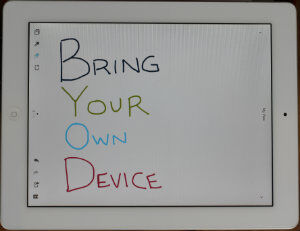 BRING
YOUR
OWN
DEVICE